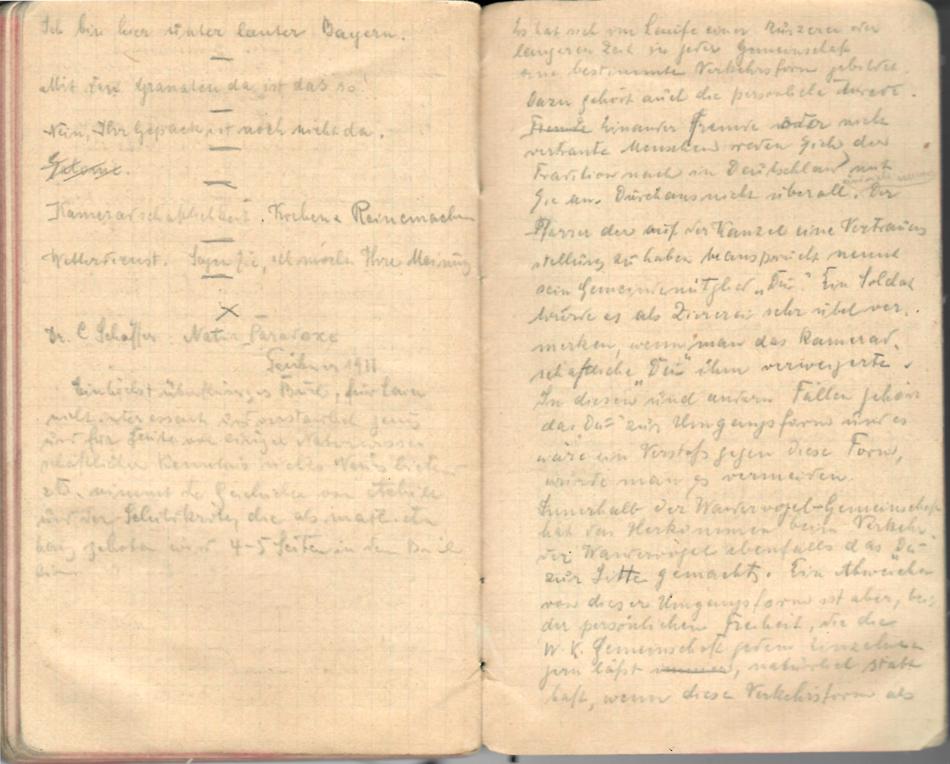 Ich bin hier unter lauter Bayern.
Mit den Granaten da, ist das so!
Nein, Ihr Gepäck ist noch nicht da.
Kameradschaftlichkeit. Kochen & Reinemachen
Wetterdienst. Sagen Sie, ich möchte Ihre Meinung
Dr. C Schäffer. Natur Paradoxe
Teubner 1911
Ein höchst überflüssiges Buch, für Laien
nicht interessant und verständlich genug
und für Leute von einiger Naturwissen
schaftlicher Kenntnis nichts Neues bietend
z.B. nimmt die Geschichte von Achill
und der Schildkröte, die als math.
geboten wird 4-5 Seiten in dem Buch
ein.
Es hat sich im Laufe einer kürzeren oder
längeren Zeit in jeder Gemeinschaft
eine bestimmte Verkehrsform gebildet.
Dazu gehört auch die persönliche Anrede.
Fremde Einander fremde oder nicht
vertraute Menschen reden sich der
Tradition nach in Deutschland mit
Sie an. Durchaus nicht überall. Der
Pfarrer der auf der Kanzel eine Vertrauens
stellung zu haben beansprucht nennt
sein Gemeindemitglied „Du". Ein Soldat
würde es als Ziererei sehr übel ver-
merken, wenn man das kamerad-
schaftliche „Du" ihm verweigerte.
In diesen und andern Fällen gehört
das Du zur Umgangsform und es
wäre ein Verstoß gegen diese Form,
würde man es vermeiden.
Innerhalb der Wandervogel-Gemeinschaft
hat das Herkommen beim Verkehr
der Wandervögel ebenfalls das Du
zur Sitte gemacht. Ein Abweichen
von dieser Umgangsform ist aber, bei
der persönlichen Freiheit, die die
W.V. Gemeinschaft jedem Einzelnen
gern läßt, natürlich statt
haft, wenn diese Verkehrsform als